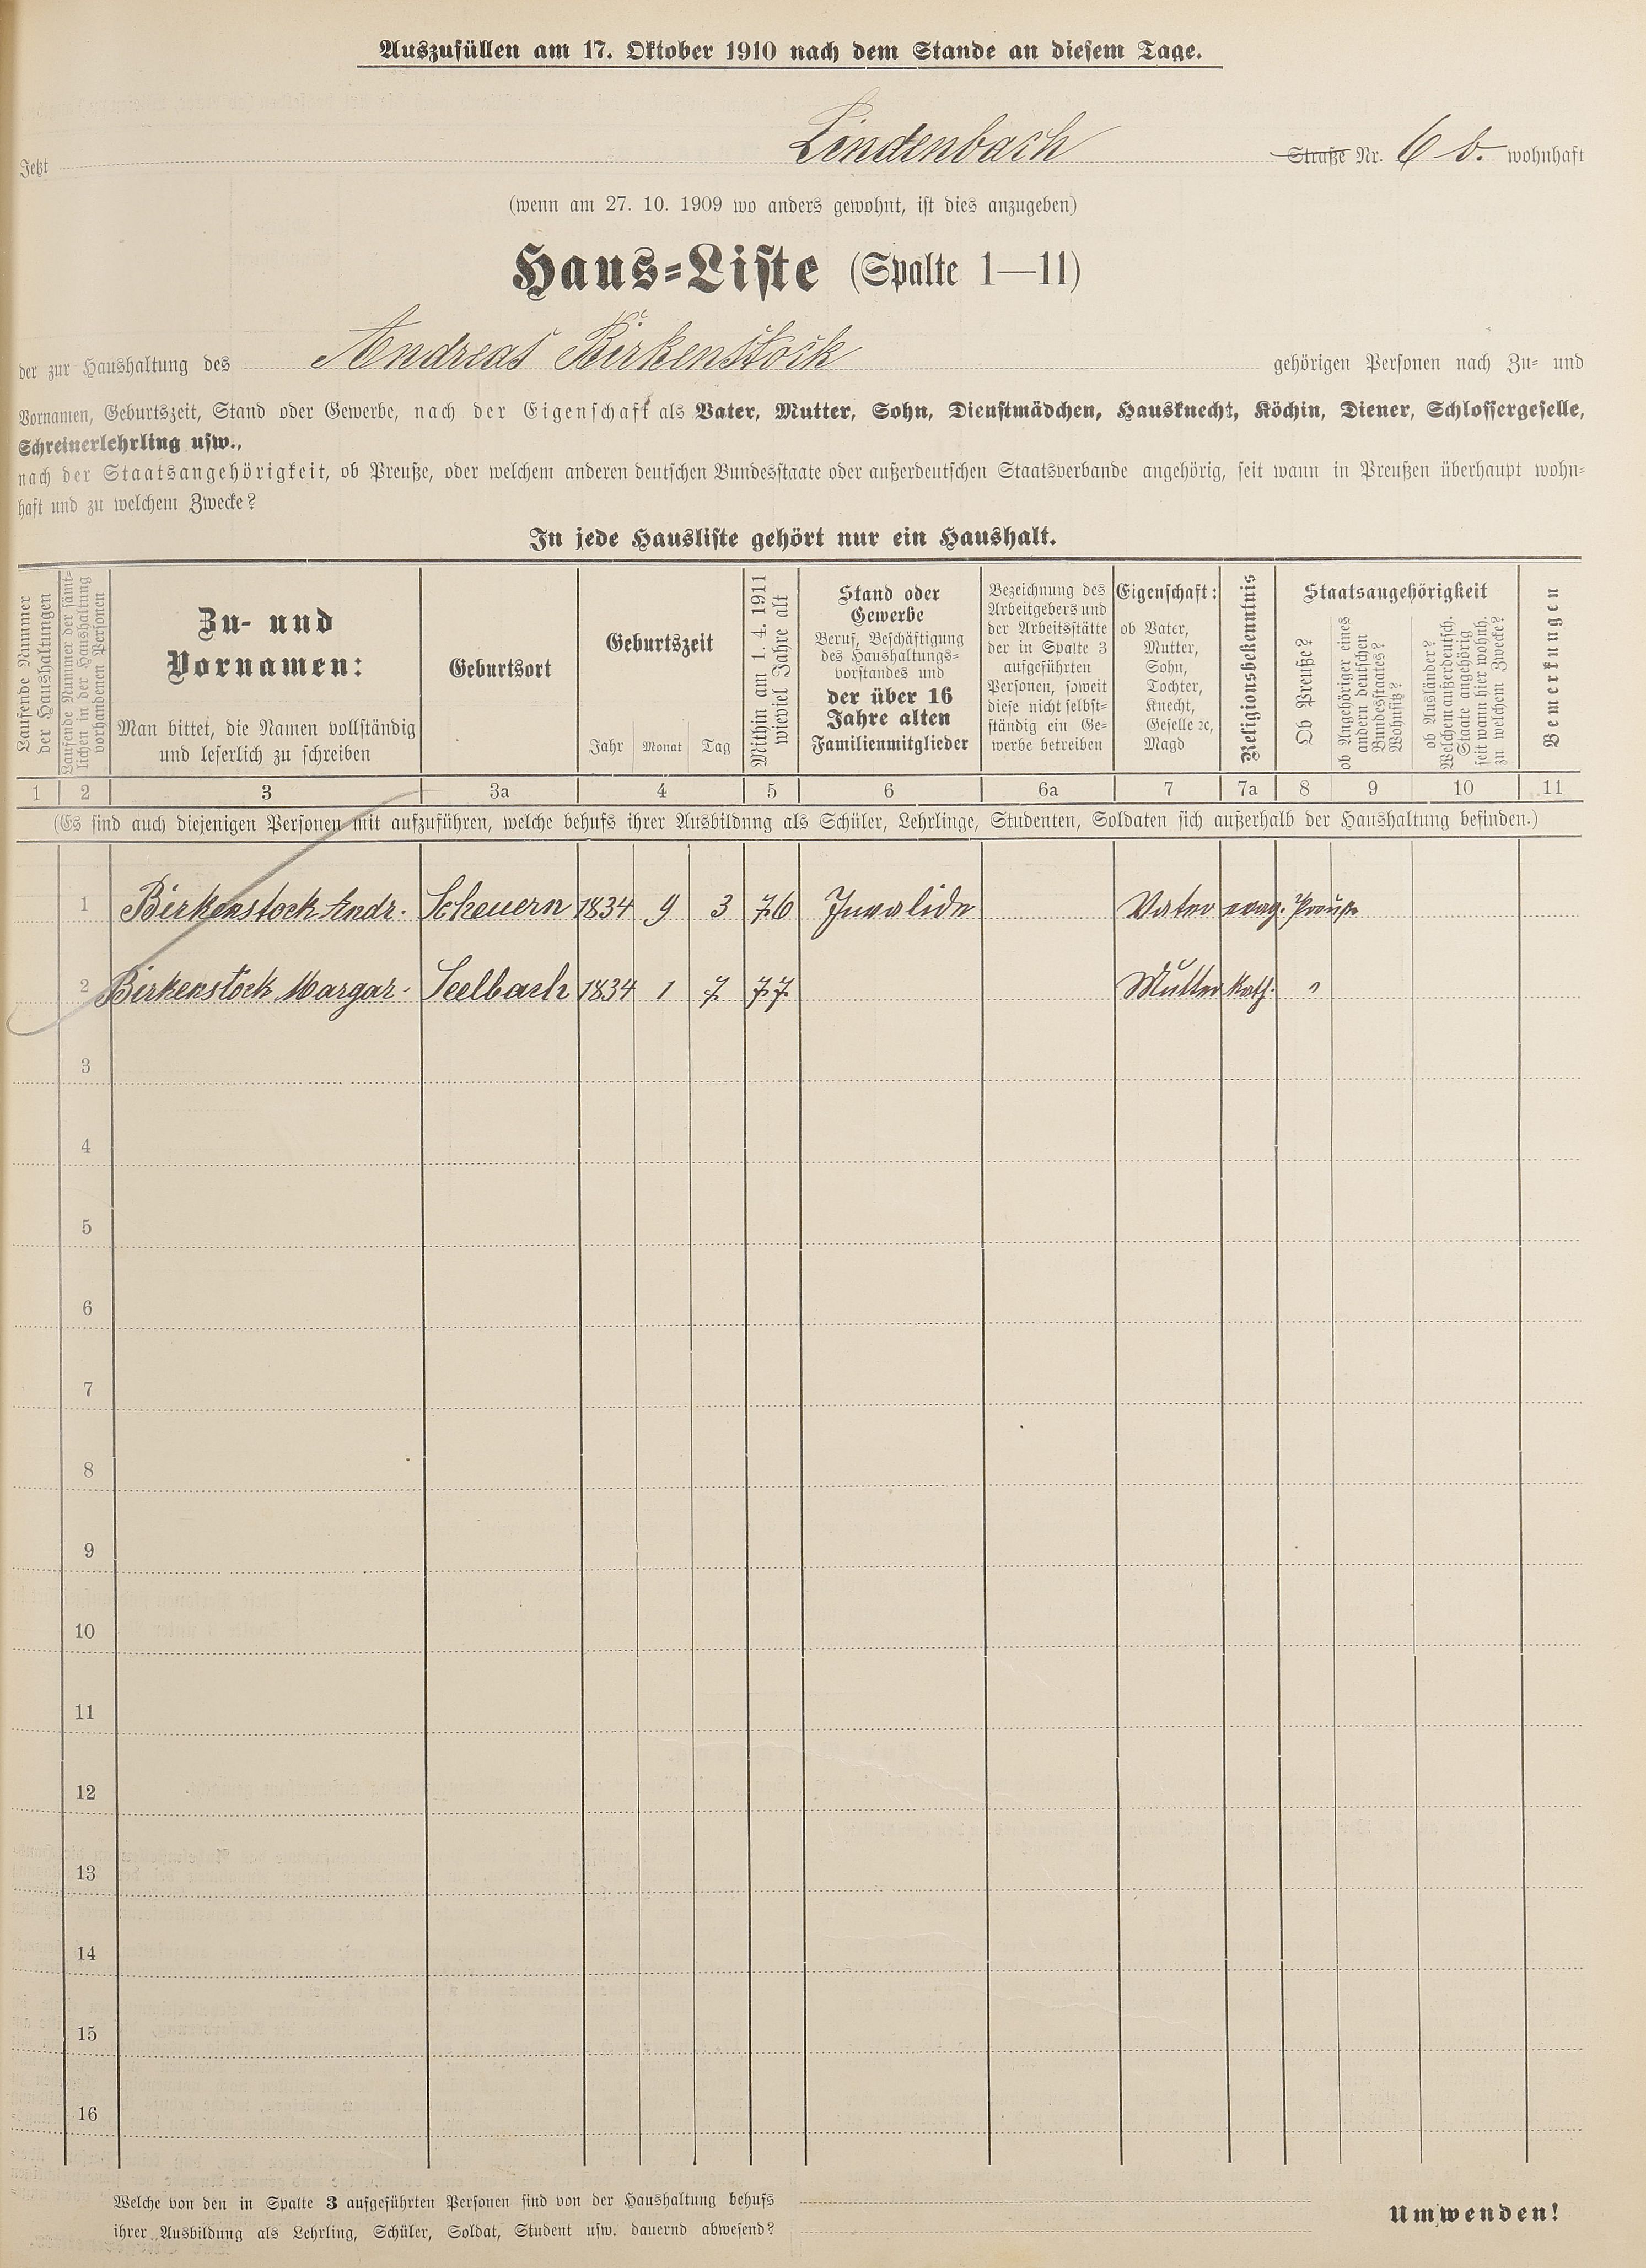 Auszufüllen am 17. Oktober 1910 nach dem Stande an diesem Tage.
Jetzt Lindenbach Straße Nr. 6 b. wohnhaft
(wenn am 27. 10. 1909 wo anders gewohnt, ist dies anzugeben)
Haus-Liste (Spalte 1—11)
der zur Haushaltung des Andreas Birkenstock gehörigen Personen nach Zu- und
Vornamen, Geburtszeit, Stand oder Gewerbe, nach der Eigenschaft als Vater, Mutter, Sohn, Dienstmädchen, Hausknecht, Köchin, Diener, Schlossergeselle,
Schreinerlehrling usw.,
nach der Staatsangehörigkeit, ob Preuße, oder welchem anderen deutschen Bundesstaate oder außerdeutschen Staatsverbande angehörig, seit wann in Preußen überhaupt wohn-
haft und zu welchem Zwecke?
In jede Hausliste gehört nur ein Haushalt.
Laufende Nummer
der Haushaltungen
Laufende Nummer der sämt-
lichen in der Haushaltung
vorhandenen Personen
Zu- und
Vornamen:
Man bittet, die Namen vollständig
und leserlich zu schreiben
Geburtsort
Geburtszeit
Jahr Monat Tag
Mithin am 1. 4. 1911
wieviel Jahre alt
Stand oder
Gewerbe
Beruf, Beschäftigung
des Haushaltungs-
vorstandes und
der über 16
Jahre alten
Familienmitglieder
Bezeichnung des
Arbeitgebers und
der Arbeitsstätte
der in Spalte 3
aufgeführten
Personen, soweit
diese nicht selbst-
ständig ein Ge-
werbe betreiben
Eigenschaft:
ob Vater,
Mutter,
Sohn,
Tochter,
Knecht,
Geselle ꝛc,
Magd
Religionsbekenntnis
Staatsangehörigkeit
Ob Preuße?
ob Angehöriger eines
andern deutschen
Bundesstaates?
Wohnsitz?
ob Ausländer?
Welchem außerdeutsch.
Staate angehörig
seit wann hier wohnh.
zu welchem Zwecke?
Bemerkungen
1 2 3 3a 4 5 6 6a 7 7a 8 9 10 11
(Es sind auch diejenigen Personen mit aufzuführen, welche behufs ihrer Ausbildung als Schüler, Lehrlinge, Studenten, Soldaten sich außerhalb der Haushaltung befinden.)
1 Birkenstock Andr. Scheuern 1834 9 3 76 Invalide Vater evag. Preuße
2 Birkenstock Margar. Seelbach 1834 1 7 77 Mutter kath. "
3
4
5
6
7
8
9
10
11
12
13
14
15
16
Welche von den in Spalte 3 aufgeführten Personen sind von der Haushaltung behufs
ihrer Ausbildung als Lehrling, Schüler, Soldat, Student usw. dauernd abwesend?
Umwenden!